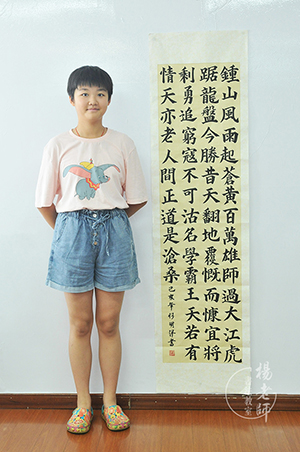 鍾山風雨起蒼黃百萬雄師過大江虎
踞龍盤今勝昔天翻地覆慨而慷宜將
剩勇追窮寇不可沽名學霸王天若有
情天亦老人間正道是滄桑
己亥年 書
楊老師